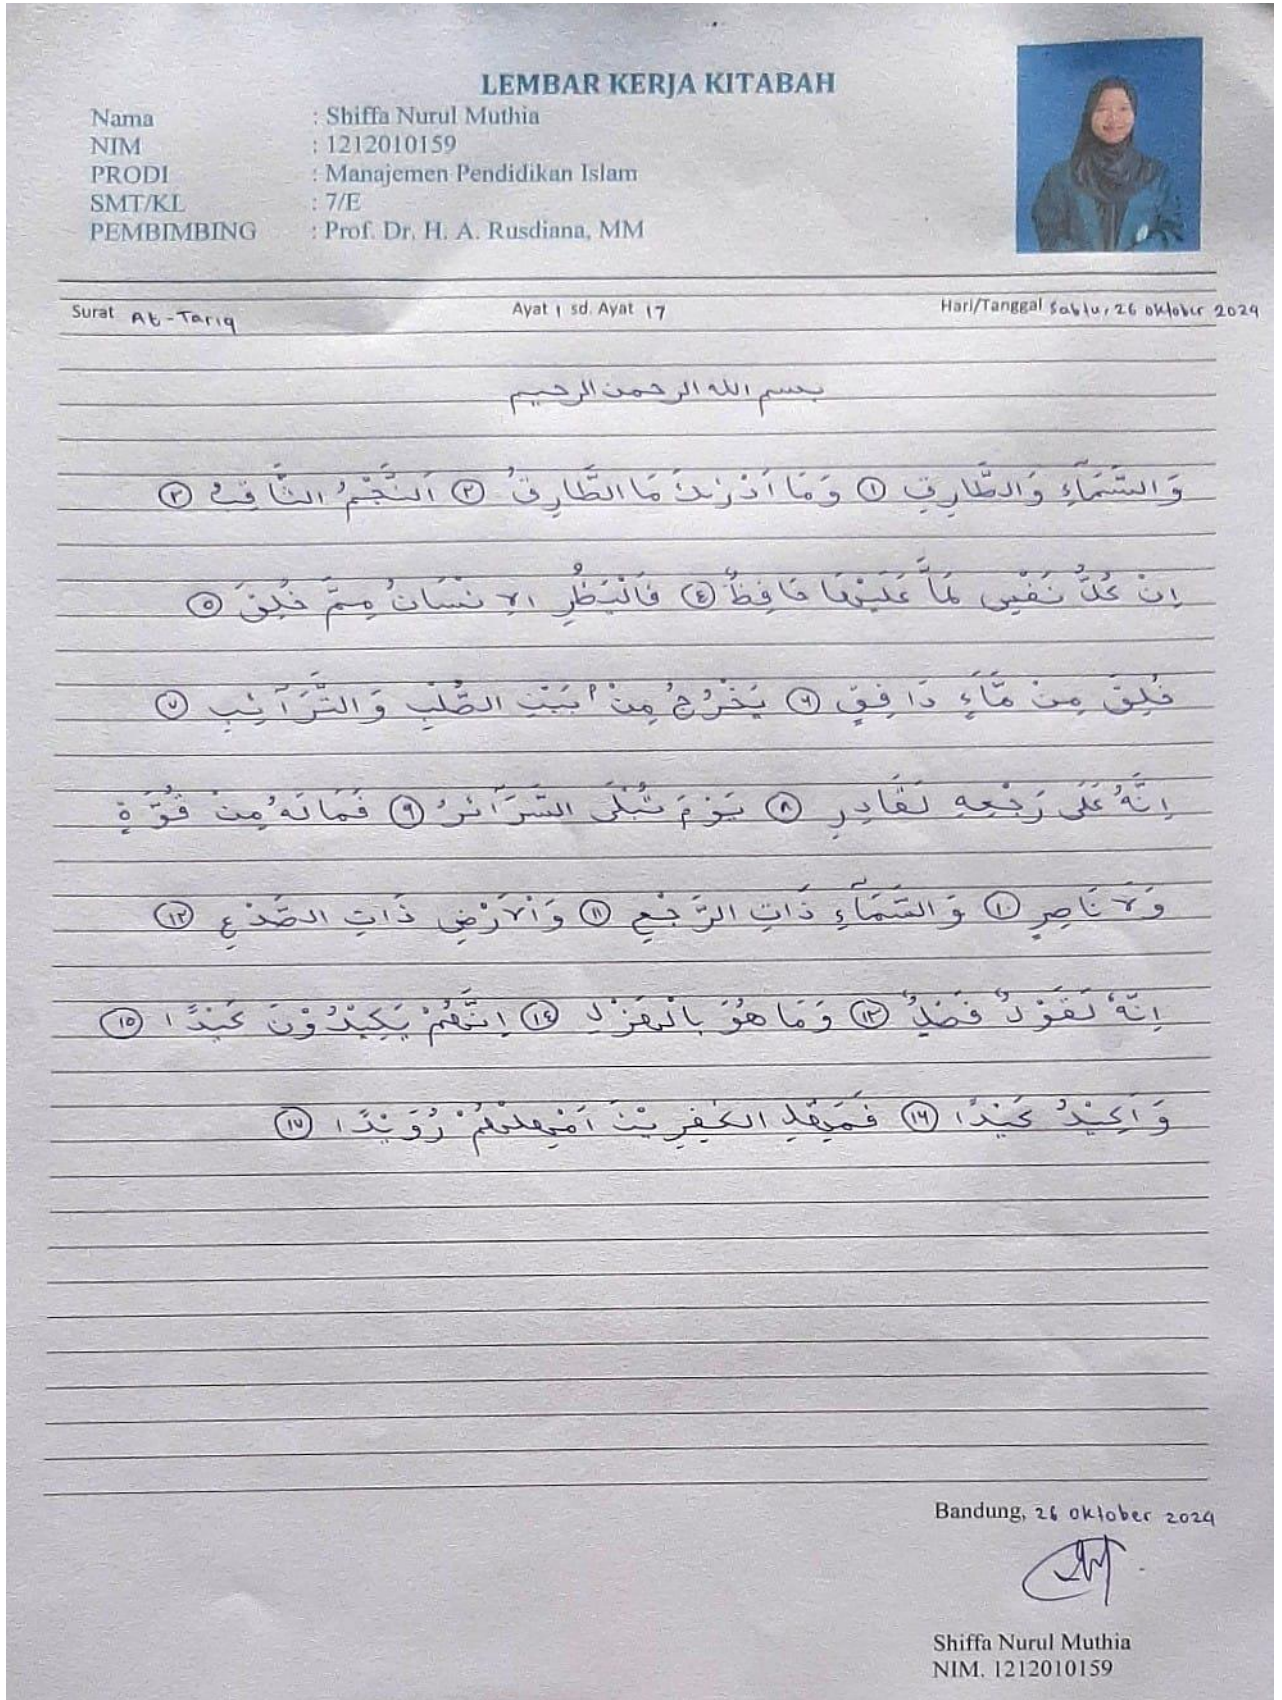 LEMBAR KERJA KITABAH
Nama : Shiffa Nurul Muthia
NIM : 1212010159
PRODI : Manajemen Pendidikan Islam
SMT/KL : 7/E
PEMBIMBING : Prof. Dr. H. A. Rusdiana, MM
Surat At-Tariq Ayat 1 sd. Ayat 17 Hari/Tanggal Sabtu, 26 oktober 2024
بسم الله الرحمن الرحيم
وَالسَّمَآءِ وَالطَّارِقِ ١ وَمَا أَدْرٰىكَ مَا الطَّارِقُ ٢ اَلنَّجْمُ الثَّاقِبُ ٣
اِنْ كُلُّ نَفْسٍ لَمَّا عَلَيْهَا حَافِظٌ ٤ فَلْيَنْظُرِ الْاِنْسَانُ مِمَّ خُلِقَ ٥
خُلِقَ مِنْ مَّآءٍ دَافِقٍ ٦ يَخْرُجُ مِنْۢ بَيْنِ الصُّلْبِ وَالتَّرَآئِبِ ٧
اِنَّهُ عَلَى رَجْعِهِ لَقَادِرٌ ٨ يَوْمَ تُبْلَى السَّرَآئِرُ ٩ فَمَا لَهُ مِنْ قُوَّةٍ
وَلَا نَاصِرٍ ١٠ وَالسَّمَآءِ ذَاتِ الرَّجْعِ ١١ وَالْاَرْضِ ذَاتِ الصَّدْعِ ١٢
اِنَّهُ لَقَوْلٌ فَصْلٌ ١٣ وَمَا هُوَ بِالْهَزْلِ ١٤ اِنَّهُمْ يَكِيْدُوْنَ كَيْدًا ١٥
وَاَكِيْدُ كَيْدًا ١٦ فَمَهِّلِ الْكٰفِرِيْنَ اَمْهِلْهُمْ رُوَيْدًا ١٧
Bandung, 26 oktober 2024
Shiffa Nurul Muthia
NIM. 1212010159